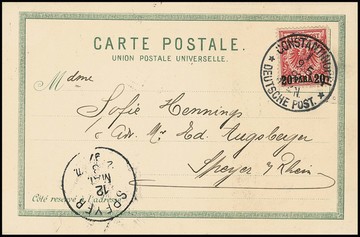 CARTE POSTALE.
UNION POSTALE UNIVERSELLE.
CONSTANTINOPEL
* DEUTSCHE POST. *
20 PARA 20
Mdme
Sofie Hennings
Adr. Mr. Ed. Augsberger
Speyer a/Rhein
SPEYER
12
MAI.
Côté réservé à l'adresse